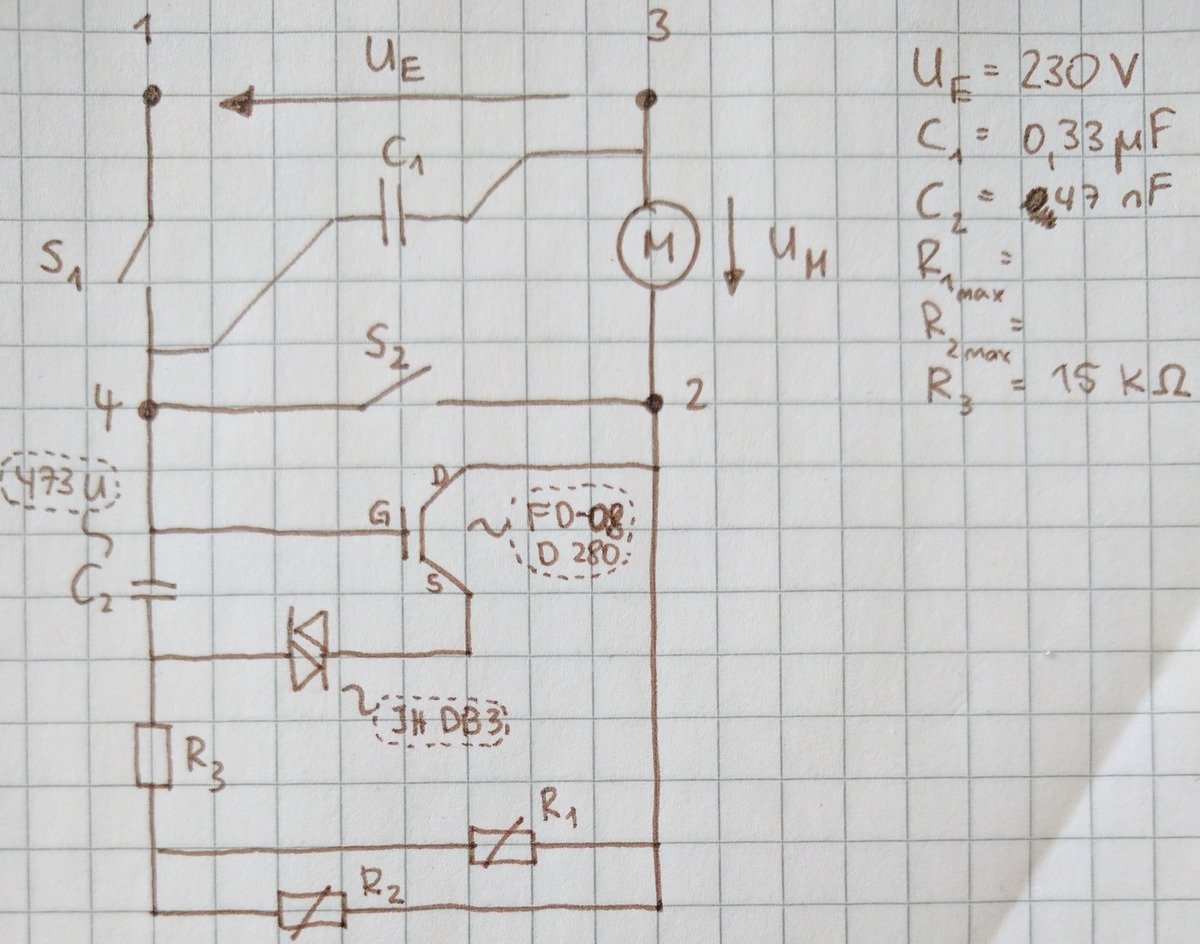 1
3
U_E
U_E = 230 V
C_1 = 0,33 µF
C_2 = 47 nF
R_1max =
R_2max =
R_3 = 15 KΩ
C_1
S_1
M
U_M
S_2
4
2
473 U
D
G
S
FD-08
D 280
C_2
JH DB3
R_3
R_1
R_2